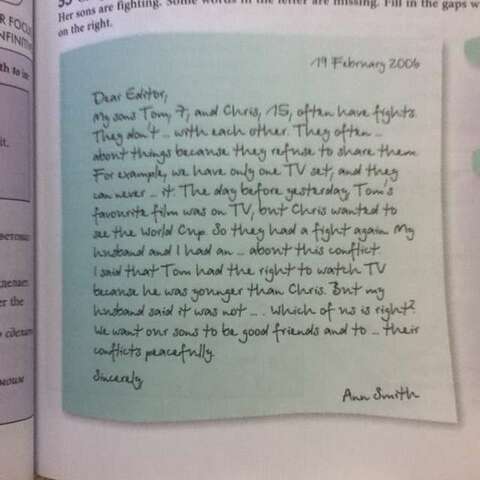 Her sons are fighting. Some words in the letter are missing. Fill in the gaps
on the right.
19 February 2006
Dear Editor,
My sons Tom, 7, and Chris, 15, often have fights.
They don't ... with each other. They often ...
about things because they refuse to share them.
For example, we have only one TV set, and they
can never ... it. The day before yesterday, Tom's
favourite film was on TV, but Chris wanted to
see the World Cup. So they had a fight again. My
husband and I had an ... about this conflict.
I said that Tom had the right to watch TV
because he was younger than Chris. But my
husband said it was not ... . Which of us is right?
We want our sons to be good friends and to ... their
conflicts peacefully.
Sincerely
Ann Smith